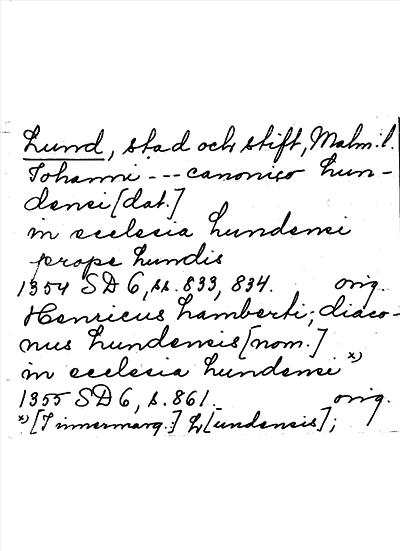 Lund, stad och stift, Malm. l.
Johanni --- canonico Lun-
densi [dat.]
in ecclesia Lundensi
prope Lundis
1354 SD 6, ss. 833, 834. orig.
Henricus Lamberti; diaco-
nus Lundensis [nom.]
in ecclesia Lundensi x)
1355 SD 6, s. 861. orig.
x) [I innermarg.] L[undensis];